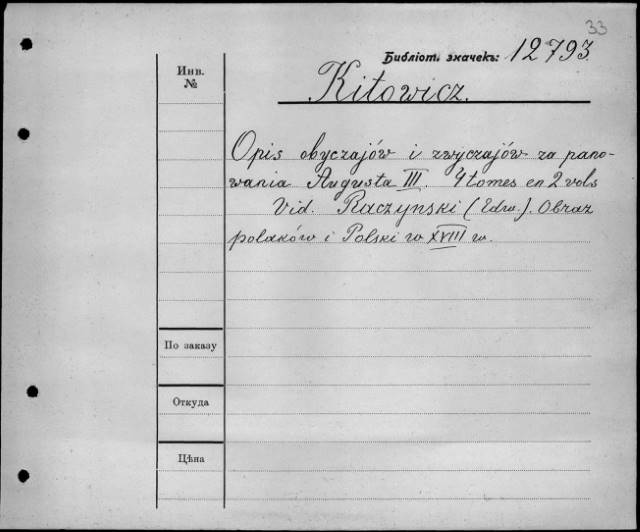 33
Библіот. значекъ: 12793.
Инв.
№
Kitowicz.
Opis obyczajów i zwyczajów za pano-
wania Augusta III. 4 tomes en 2 vols
Vid. Raczynski (Edw.). Obraz
polaków i Polski w XVIII w.
По заказу
Откуда
Цѣна